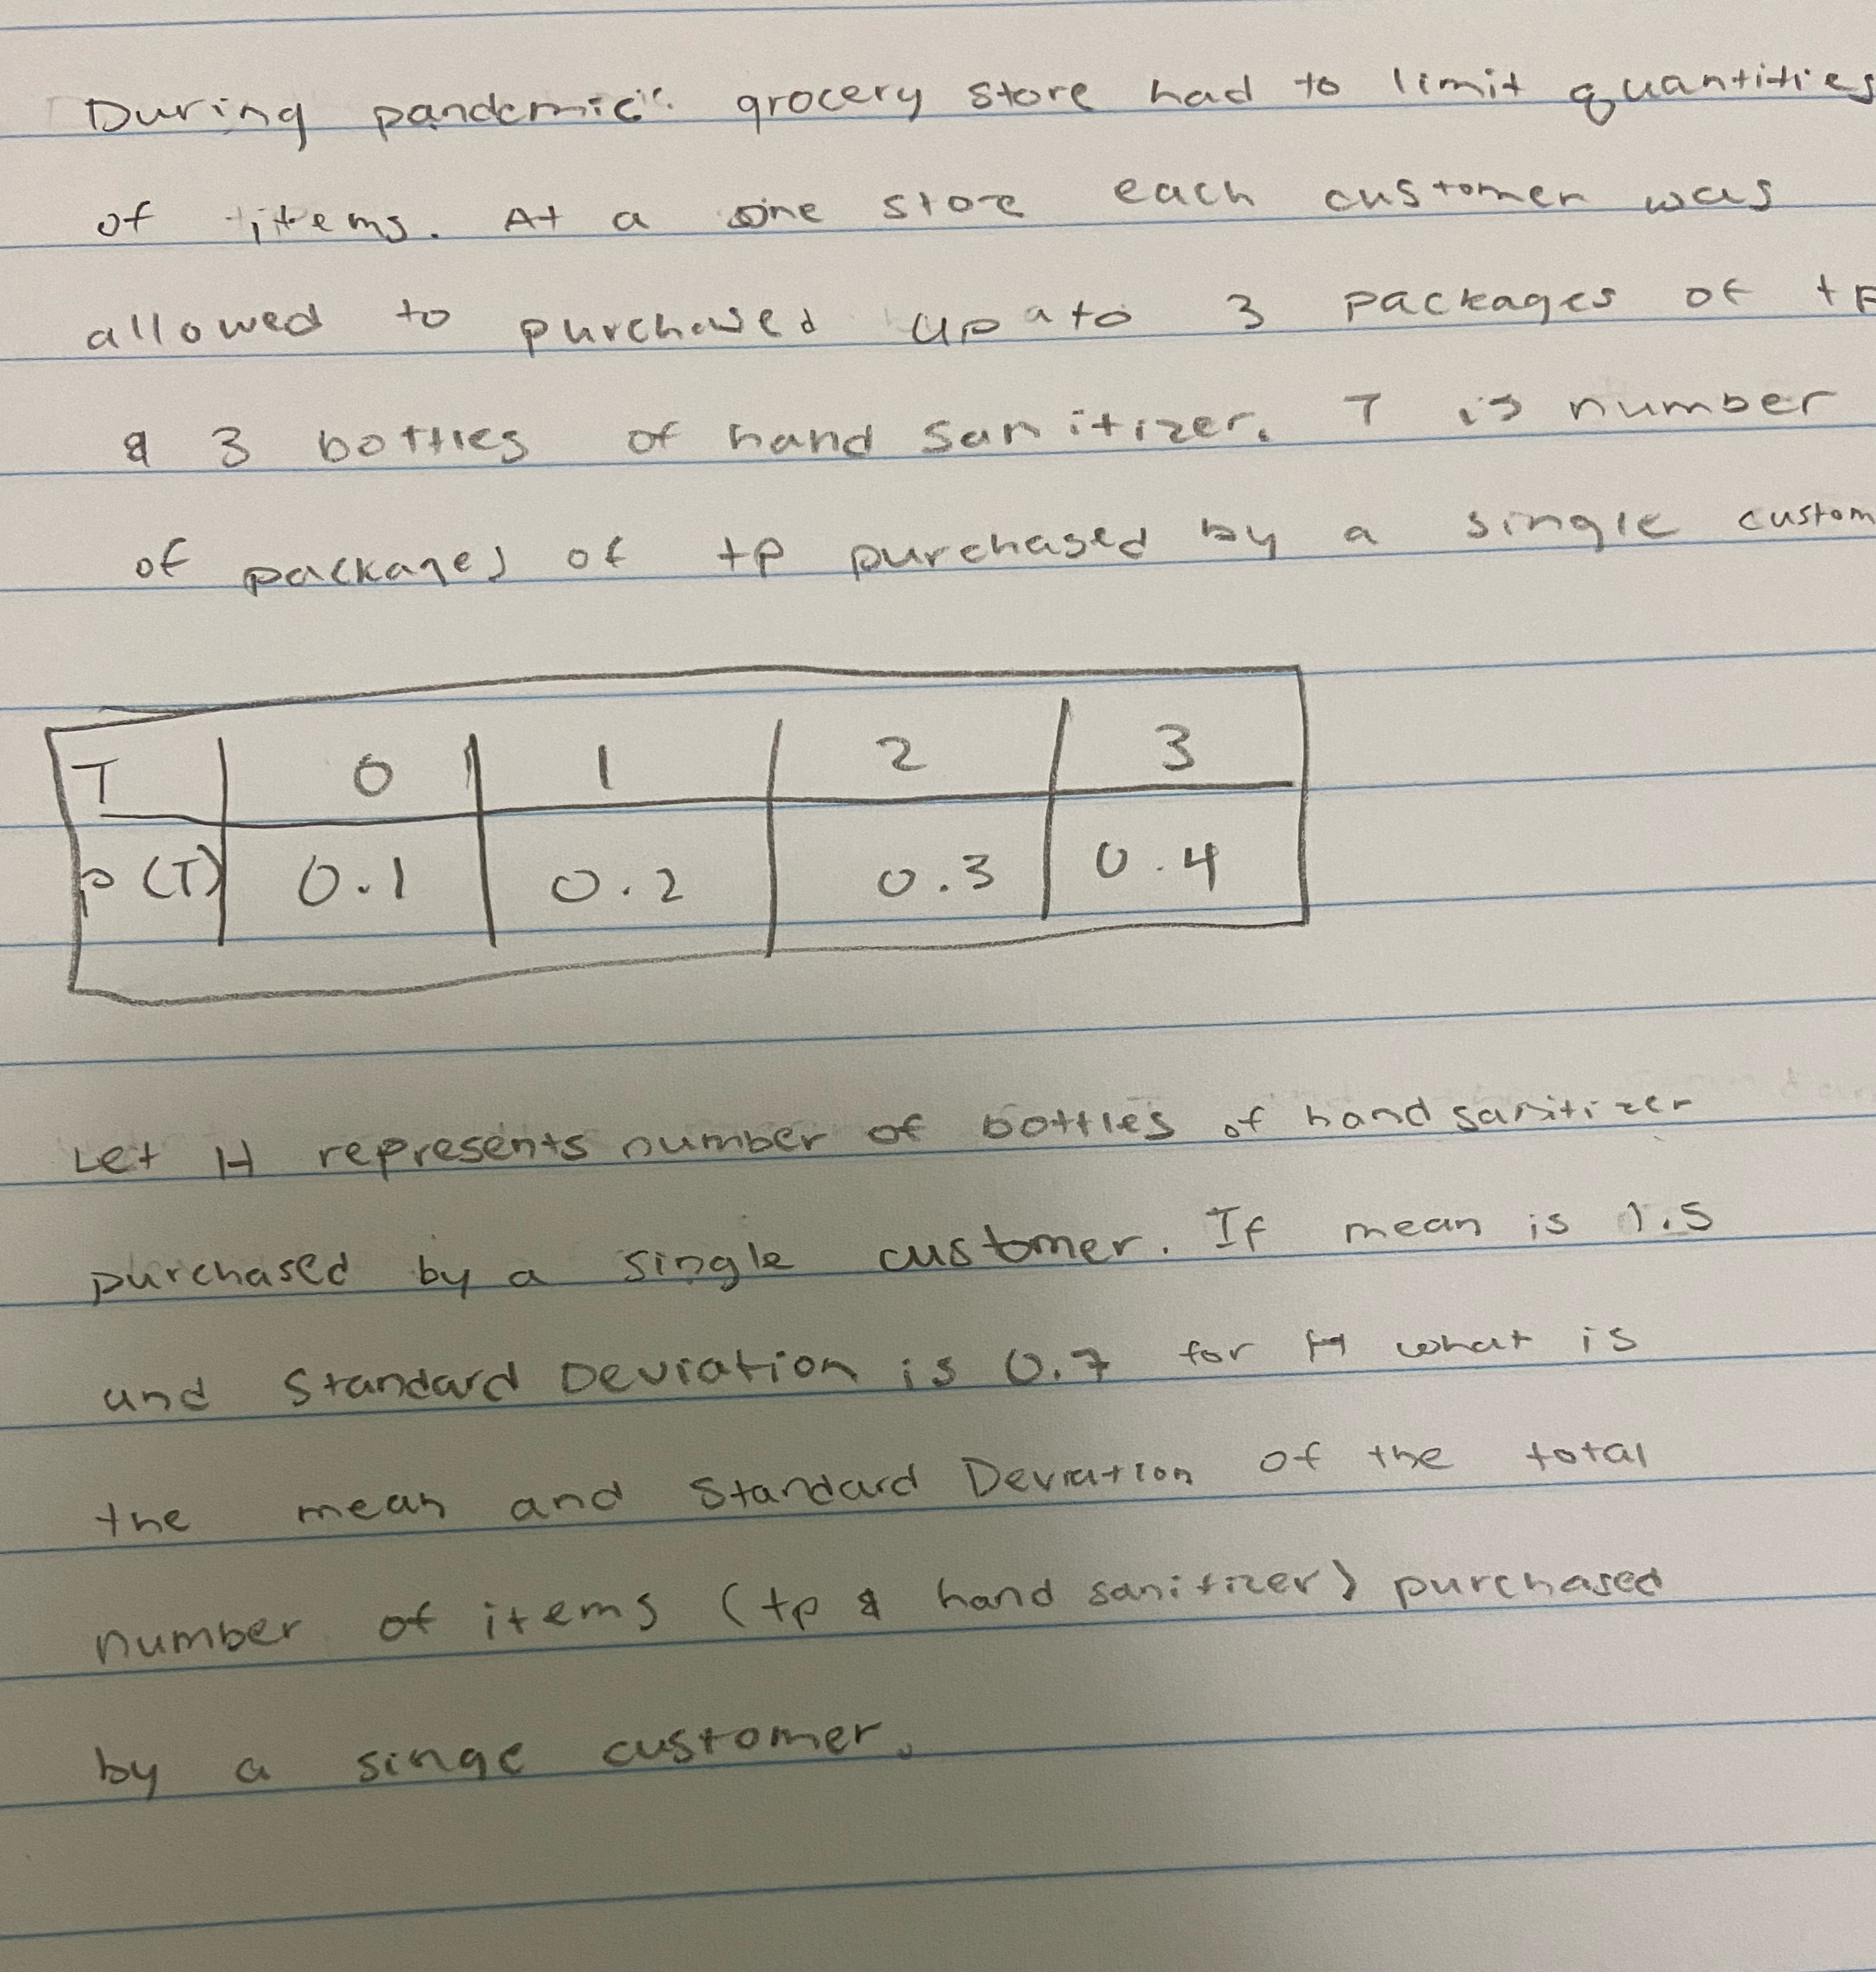 During pandemic" grocery store had to limit quantities
of items. At a one store each customer was
allowed to purchased up to 3 packages of tp
& 3 bottles of hand sanitizer. T is number
of packages of tp purchased by a single custom
T 0 1 2 3
p(T) 0.1 0.2 0.3 0.4
Let H represents number of bottles of hand sanitizer
purchased by a single customer. If mean is 1.5
and Standard Deviation is 0.7 for H what is
the mean and Standard Deviation of the total
number of items (tp & hand sanitizer) purchased
by a singe customer.